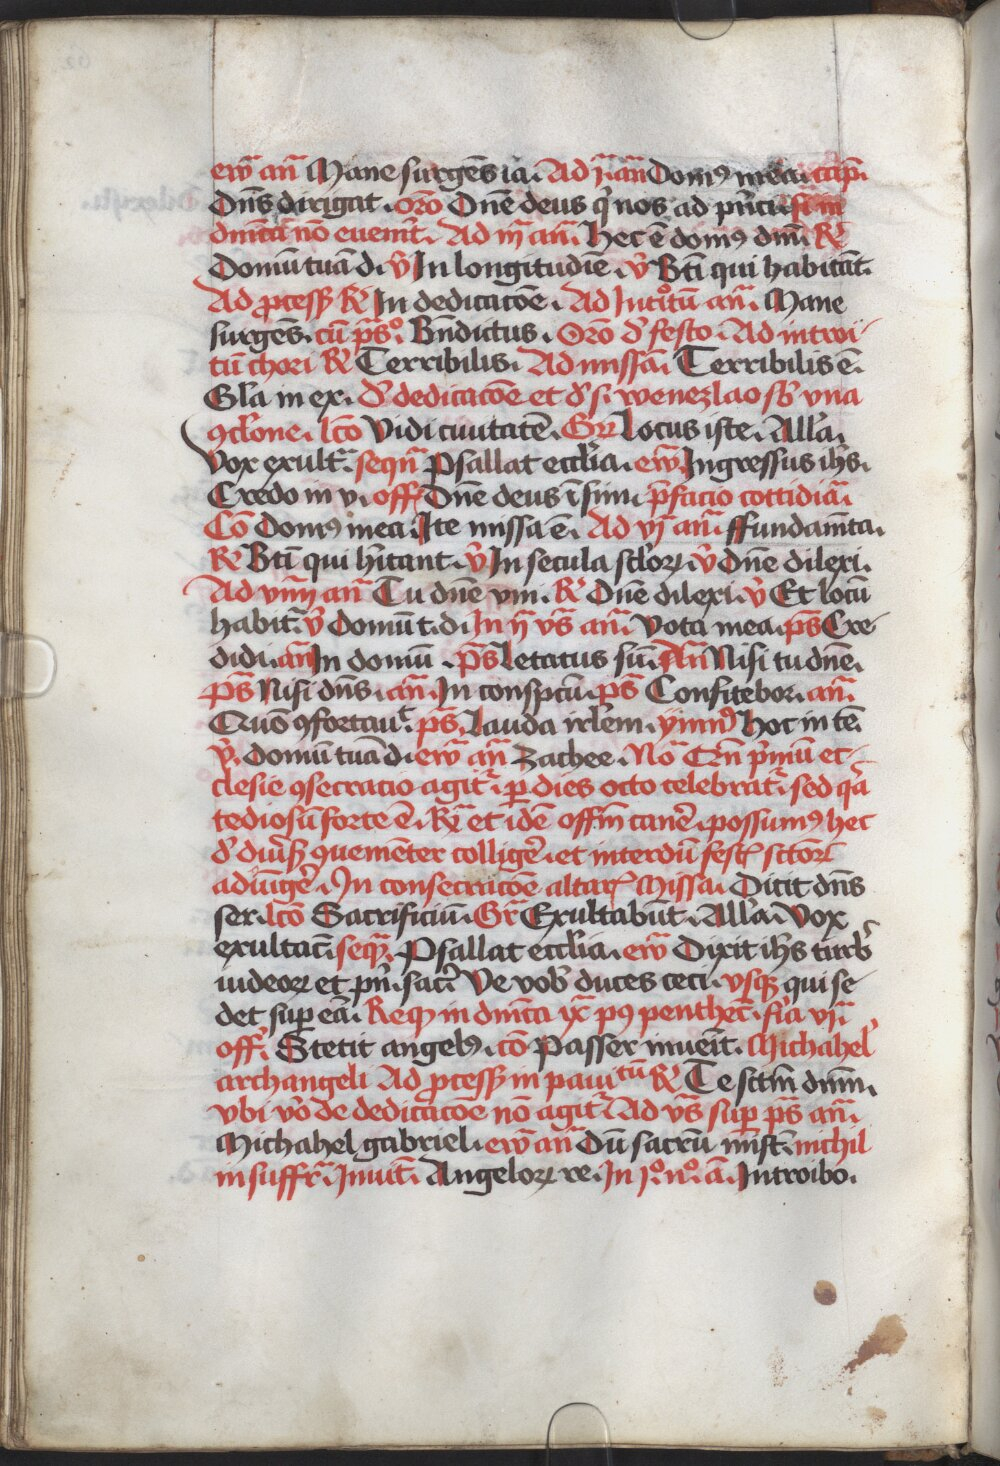 ew̄ an̄ Mane surgēs ia. Ad j. an̄ Domꝰ mea. ccīp.
Dn̄s dirigat. Orō Dn̄e deus q̇ nos ad pn̄cī. si in
dn̄ica nō eueīt. Ad iij an̄. Hec ē domꝰ dn̄i. R̸
Domū tuā d. v̄ In longitudīe. v̄ Bt̄i qui habitāt.
Ad ꝓcess R̸ In dedicacōe. Ad Introitū an̄. Mane
surgēs. cū p̄s. Bn̄dictus. Orō d̄ festo. Ad introi-
tū chori R̸ Terribilis. Ad missā. Terribilis ē.
Gl̄a in ex. d̄ dedicacōe et d̄ s. wenezlao sb̄ vna
ꝯcl̄one. lc̄o Vidi ciuitatē. Gr̄ Locus iste. All̄a.
Vox exult̄. seqn̄ Psallat eccl̄ia. ew̄. Ingressus ih̄s.
Credo in v. off̄ Dn̄e deus ī sim. p̄facio cottidiā.
Cō Domꝰ mea. Ite missa ē. Ad vj an̄. ffundam̄ta.
R̸ Bt̄i qui hītant. v̄ In secula scl̄oꝝ. v̄ Dn̄e dilexi.
Ad viiij an̄ Tu dn̄e vni. R̸ Dn̄e dilexi. v̄ Et locū
habit̄. v̄ Domū t. d. In ij vs̄ an̄. Vota mea. ps̄ Cre-
didi. an̄ In domū. Ps̄ Letatus sū. An̄ Nisi tu dn̄e.
Ps̄ Nisi dn̄s. an̄. In conspectu. ps̄ Confitebor. an̄.
Qm̄ ꝯfortauit. ps̄. Lauda irl̄em. ymnꝰ Hoc in tē.
v̄. Domū tuā d. ew̄ an̄ Zachee. No Cū p̄mū ec-
clesie ꝯsecracio agit̄. ꝑ dies octo celebrat̄. sed q̄a
tediosū forte ē. R̄ et idē off̄m canē. possumꝰ hec
d̄ diu̇sꝭ ꝯuenienter colligē. et interdū festꝭ sctōꝝ
adiūgē. In consecracōe altarꝭ Missa. Dicit dn̄s
ser. lc̄o Sacrificiū. Gr̄ Exultabūt. All̄a. Vox
exultac̄. seqn̄. Psallat eccl̄ia. ew̄ Dixit ih̄s turbꝭ
iudeoꝝ et pn̄. sac̄. Ve vobꝭ duces ceci. vsqꝫ qui se
det suꝑ eā. Reqꝫ in dn̄ica ix pꝰ penthec̄. fīa vij.
off̄. Stetit angelꝰ. cō Passer inueīt. Michahel
archangeli Ad ꝓcess in pauitū R̸ Te sctm̄ dn̄m.
vbi vo de dedicacōe nō agit̄. Ad vs̄ suꝑ ps̄ an̄.
Michahel gabriel. ew̄ an̄ Dū sacrū mīst. nichil
in suffr̄. Inuit̄. Angeloꝝ re. In j. n. a. Introibo.